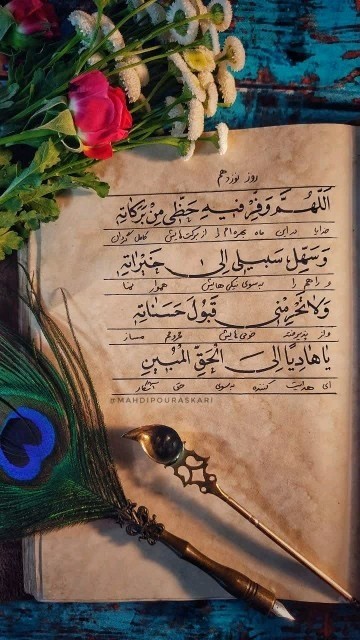 روز نوزدهم
اَللّهُمَّ وَفِّرْ فیهِ حَظّی مِنْ بَرَکاتِهِ
خدایا در این ماه بهره‌ام را از برکت‌هایش کامل گردان
وَ سَهِّلْ سَبیلی اِلی خَیْراتِهِ
و راهم را به‌سوی نیکی‌هایش هموار نما
وَ لا تَحْرِمْنی قَبُولَ حَسَناتِهِ
و از پذیرفته خوبی‌هایش محروم مساز
یا هادِیًا اِلَی الْحَقِّ الْمُبینِ
ای هدایت کننده به‌سوی حق آشکار
#MAHDIPOURASKARI